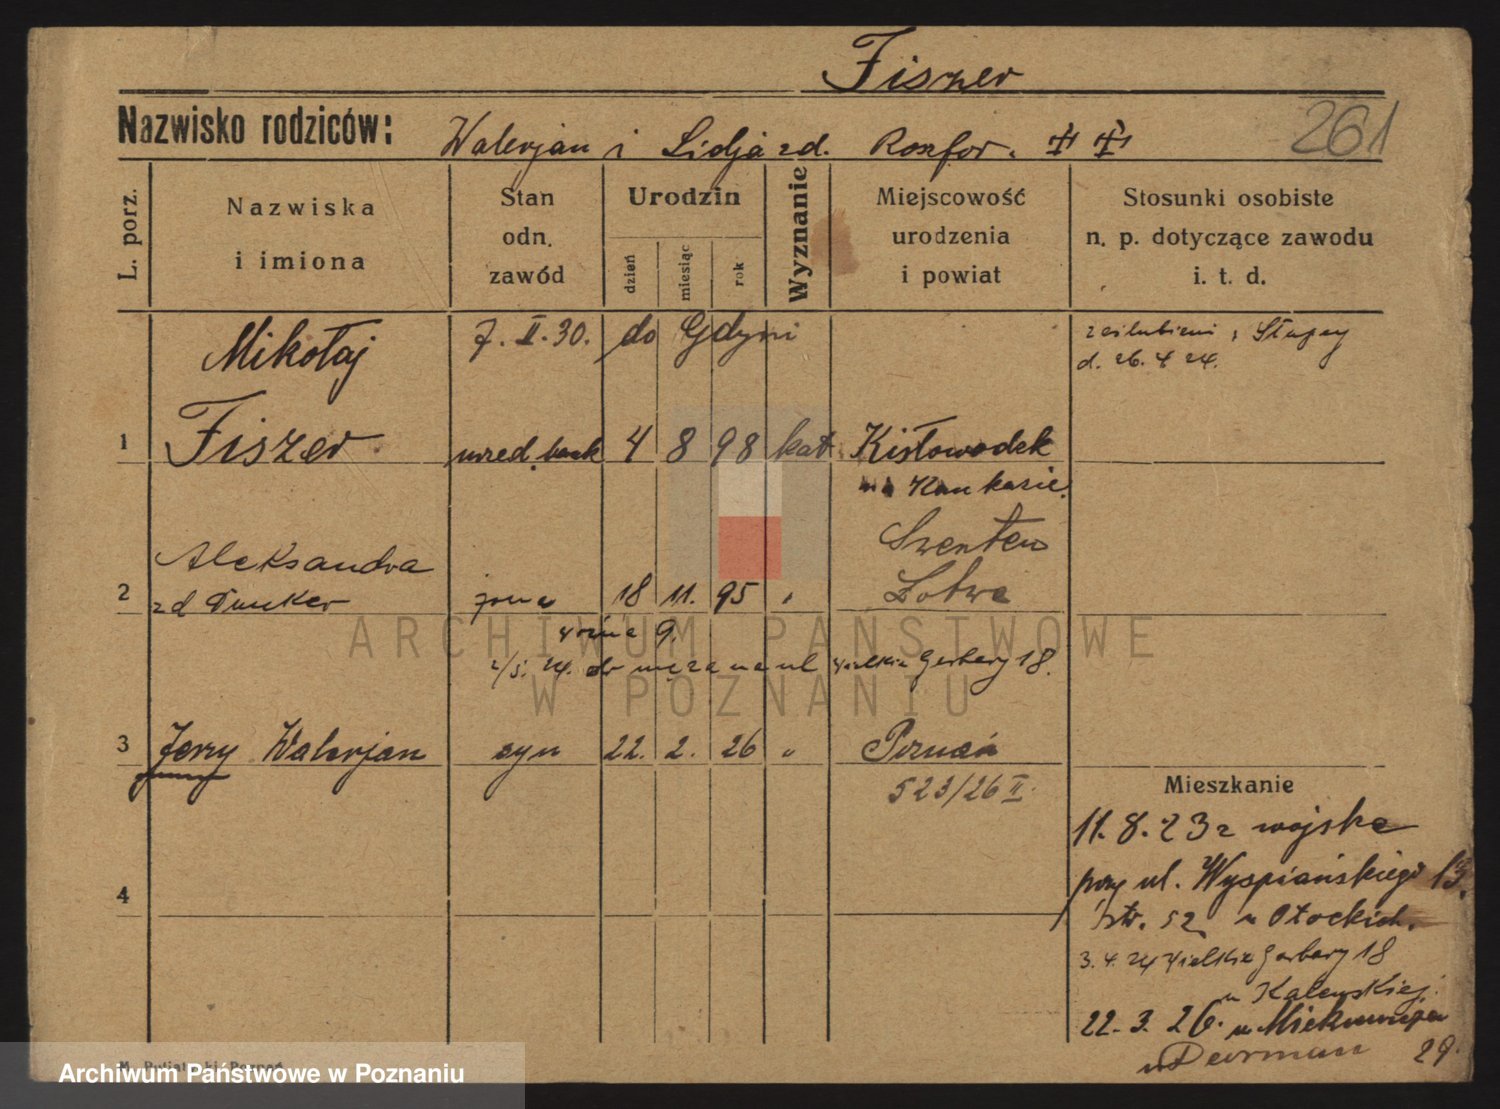 Fiszer
Nazwisko rodziców: Walerjan i Lidja zd. Roxfor. ‡ ‡ 261
L. porz.
Nazwiska i imiona
Stan odn. zawód
Urodzin
dzień miesiąc rok
Wyznanie
Miejscowość urodzenia i powiat
Stosunki osobiste n. p. dotyczące zawodu i. t. d.
Mikołaj 7. II. 30. do Gdyni
zaślubieni
d. 26. 4 24.
1 Fiszer urzed. bank 4 8 98 kat. Kisłowodzk
na Kaukazie.
Szenten
2 Aleksandra
zd żona 18 11. 95 " Łotwa
9.
2/5. 24. do męża na ul Wielkie Garbary 18.
3 Jerzy Walerjan syn 22. 2. 26 " Poznań
523/26 II.
Mieszkanie
11. 8. 23 z wojska
przy ul. Wyspiańskiego 13.
str. 52 u Otockich.
4
3. 4. 24 Wielkie Garbary 18
u
22. 3. 26. u
u 29.
ARCHIWUM PAŃSTWOWE
W POZNANIU
Archiwum Państwowe w Poznaniu